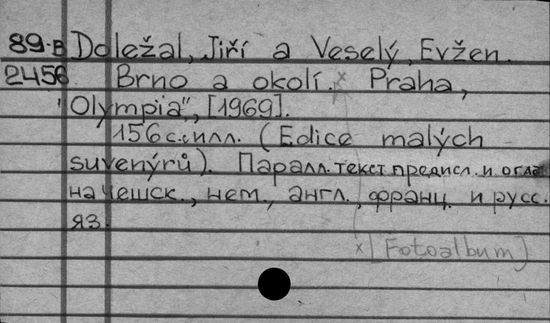 89-B Doležal, Jiří a Veselý, Evžen.
2456 Brno a okolí. Praha,
"Olympia", [1969].
156 с. с илл. (Edice malých
suvenýrů). Паралл. текст предисл. и огла
на чешск., нем., англ., франц. и русс.
яз.
x [Fotoalbum]